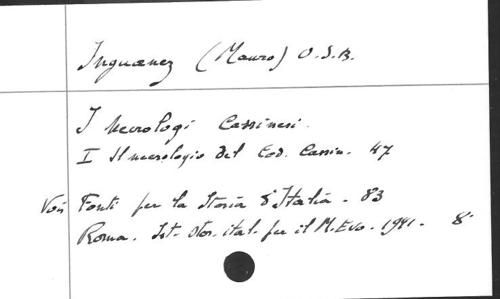 Inguanez (Mauro) O.S.B.
I Necrologi Cassinesi.
I Il necrologio del Cod. Cassin. 47
Fonti per la Storia d'Italia - 83
Roma. Ist. stor. ital. per il M.Evo - 1941 - 8°